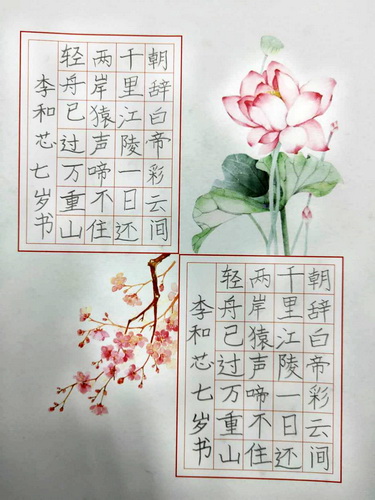 朝辞白帝彩云间
千里江陵一日还
两岸猿声啼不住
轻舟已过万重山
李和芯七岁书
朝辞白帝彩云间
千里江陵一日还
两岸猿声啼不住
轻舟已过万重山
李和芯七岁书